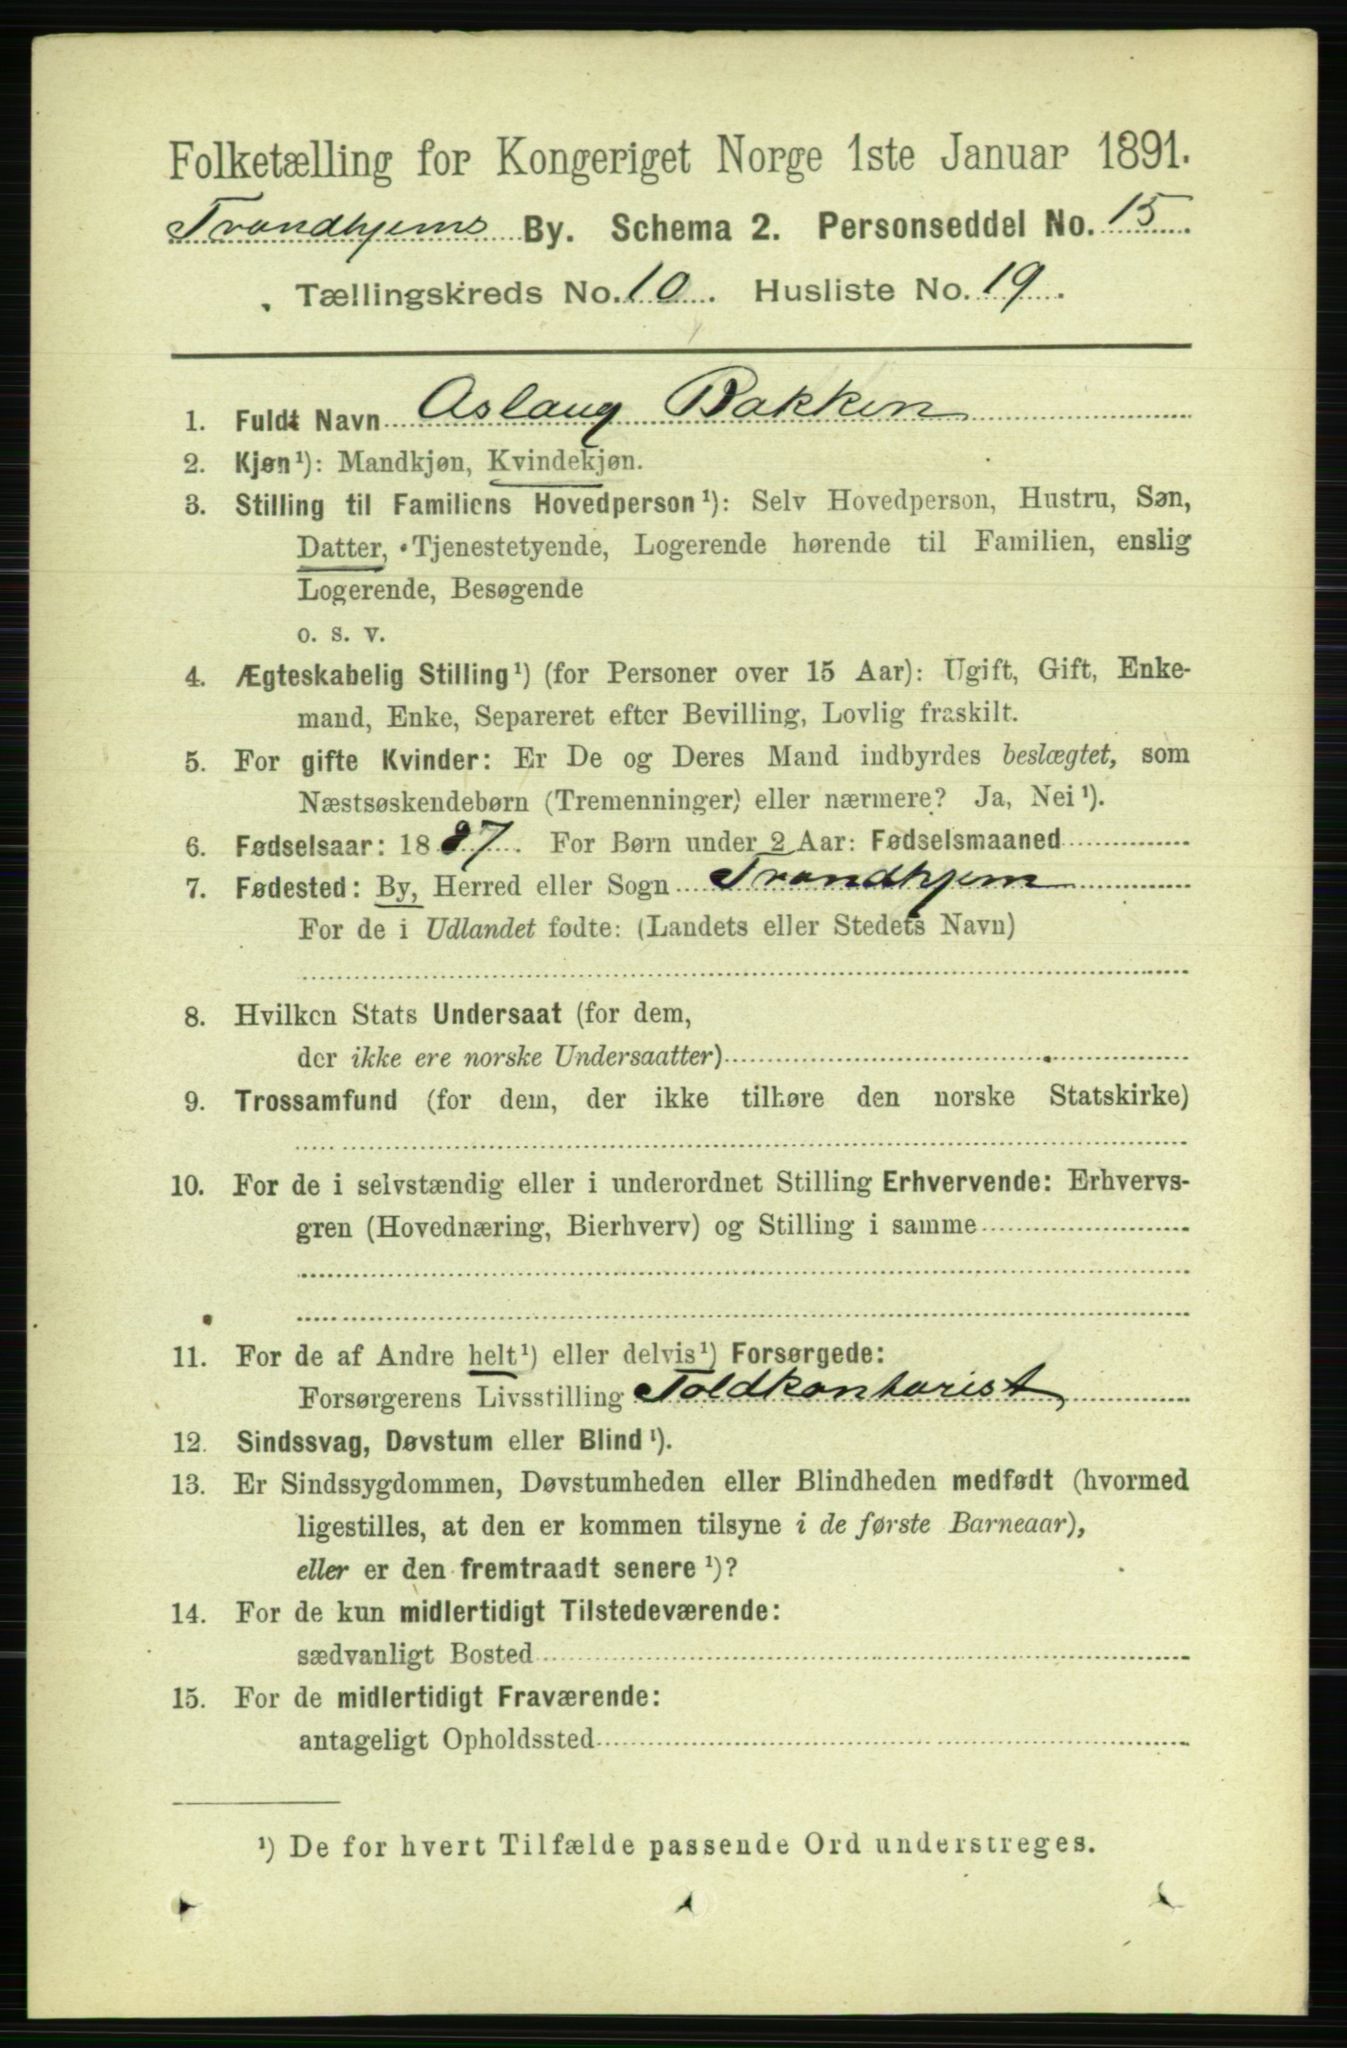 Folketælling for Kongeriget Norge 1ste Januar 1891.
Trondhjems By. Schema 2. Personseddel No. 15
Tællingskreds No. 10. Husliste No. 19.
1. Fuldt Navn Aslaug Bakken
2. Kjøn¹): Mandkjøn, Kvindekjøn.
3. Stilling til Familiens Hovedperson¹): Selv Hovedperson, Hustru, Søn,
Datter, Tjenestetyende, Logerende hørende til Familien, enslig
Logerende, Besøgende
o. s. v.
4. Ægteskabelig Stilling¹) (for Personer over 15 Aar): Ugift, Gift, Enke-
mand, Enke, Separeret efter Bevilling, Lovlig fraskilt.
5. For gifte Kvinder: Er De og Deres Mand indbyrdes beslægtet, som
Næstsøskendebørn (Tremenninger) eller nærmere? Ja, Nei¹).
6. Fødselsaar: 1887. For Børn under 2 Aar: Fødselsmaaned
7. Fødested: By, Herred eller Sogn Trondhjem
For de i Udlandet fødte: (Landets eller Stedets Navn)
8. Hvilken Stats Undersaat (for dem,
der ikke ere norske Undersaatter)
9. Trossamfund (for dem, der ikke tilhøre den norske Statskirke)
10. For de i selvstændig eller i underordnet Stilling Erhvervende: Erhvervs-
gren (Hovednæring, Bierhverv) og Stilling i samme
11. For de af Andre helt¹) eller delvis¹) Forsørgede:
Forsørgerens Livsstilling Toldkontorist
12. Sindssvag, Døvstum eller Blind¹).
13. Er Sindssygdommen, Døvstumheden eller Blindheden medfødt (hvormed
ligestilles, at den er kommen tilsyne i de første Barneaar),
eller er den fremtraadt senere¹)?
14. For de kun midlertidigt Tilstedeværende:
sædvanligt Bosted
15. For de midlertidigt Fraværende:
antageligt Opholdssted
¹) De for hvert Tilfælde passende Ord understreges.